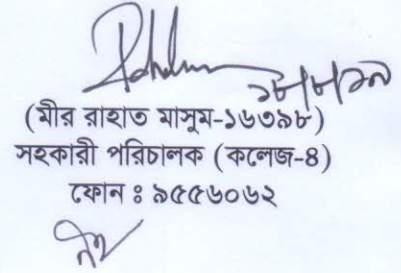 ১৮/৮/১৯
(মীর রাহাত মাসুম-১৬৩৯৮)
সহকারী পরিচালক (কলেজ-৪)
ফোন ঃ ৯৫৫৬০৬২